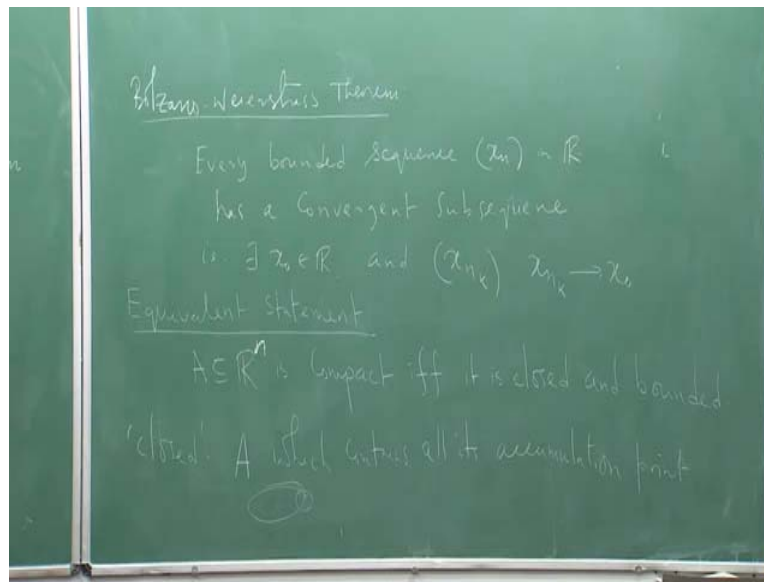 Bolzano-Weierstrass Theorem
Every bounded sequence (xn) in ℝ
has a Convergent Subsequence
ie. ∃ x₀ ∈ ℝ and (x_{n_k}) x_{n_k} → x₀
Equivalent Statement
A ⊆ ℝⁿ is Compact iff it is closed and bounded
'closed' A which contains all its accumulation point